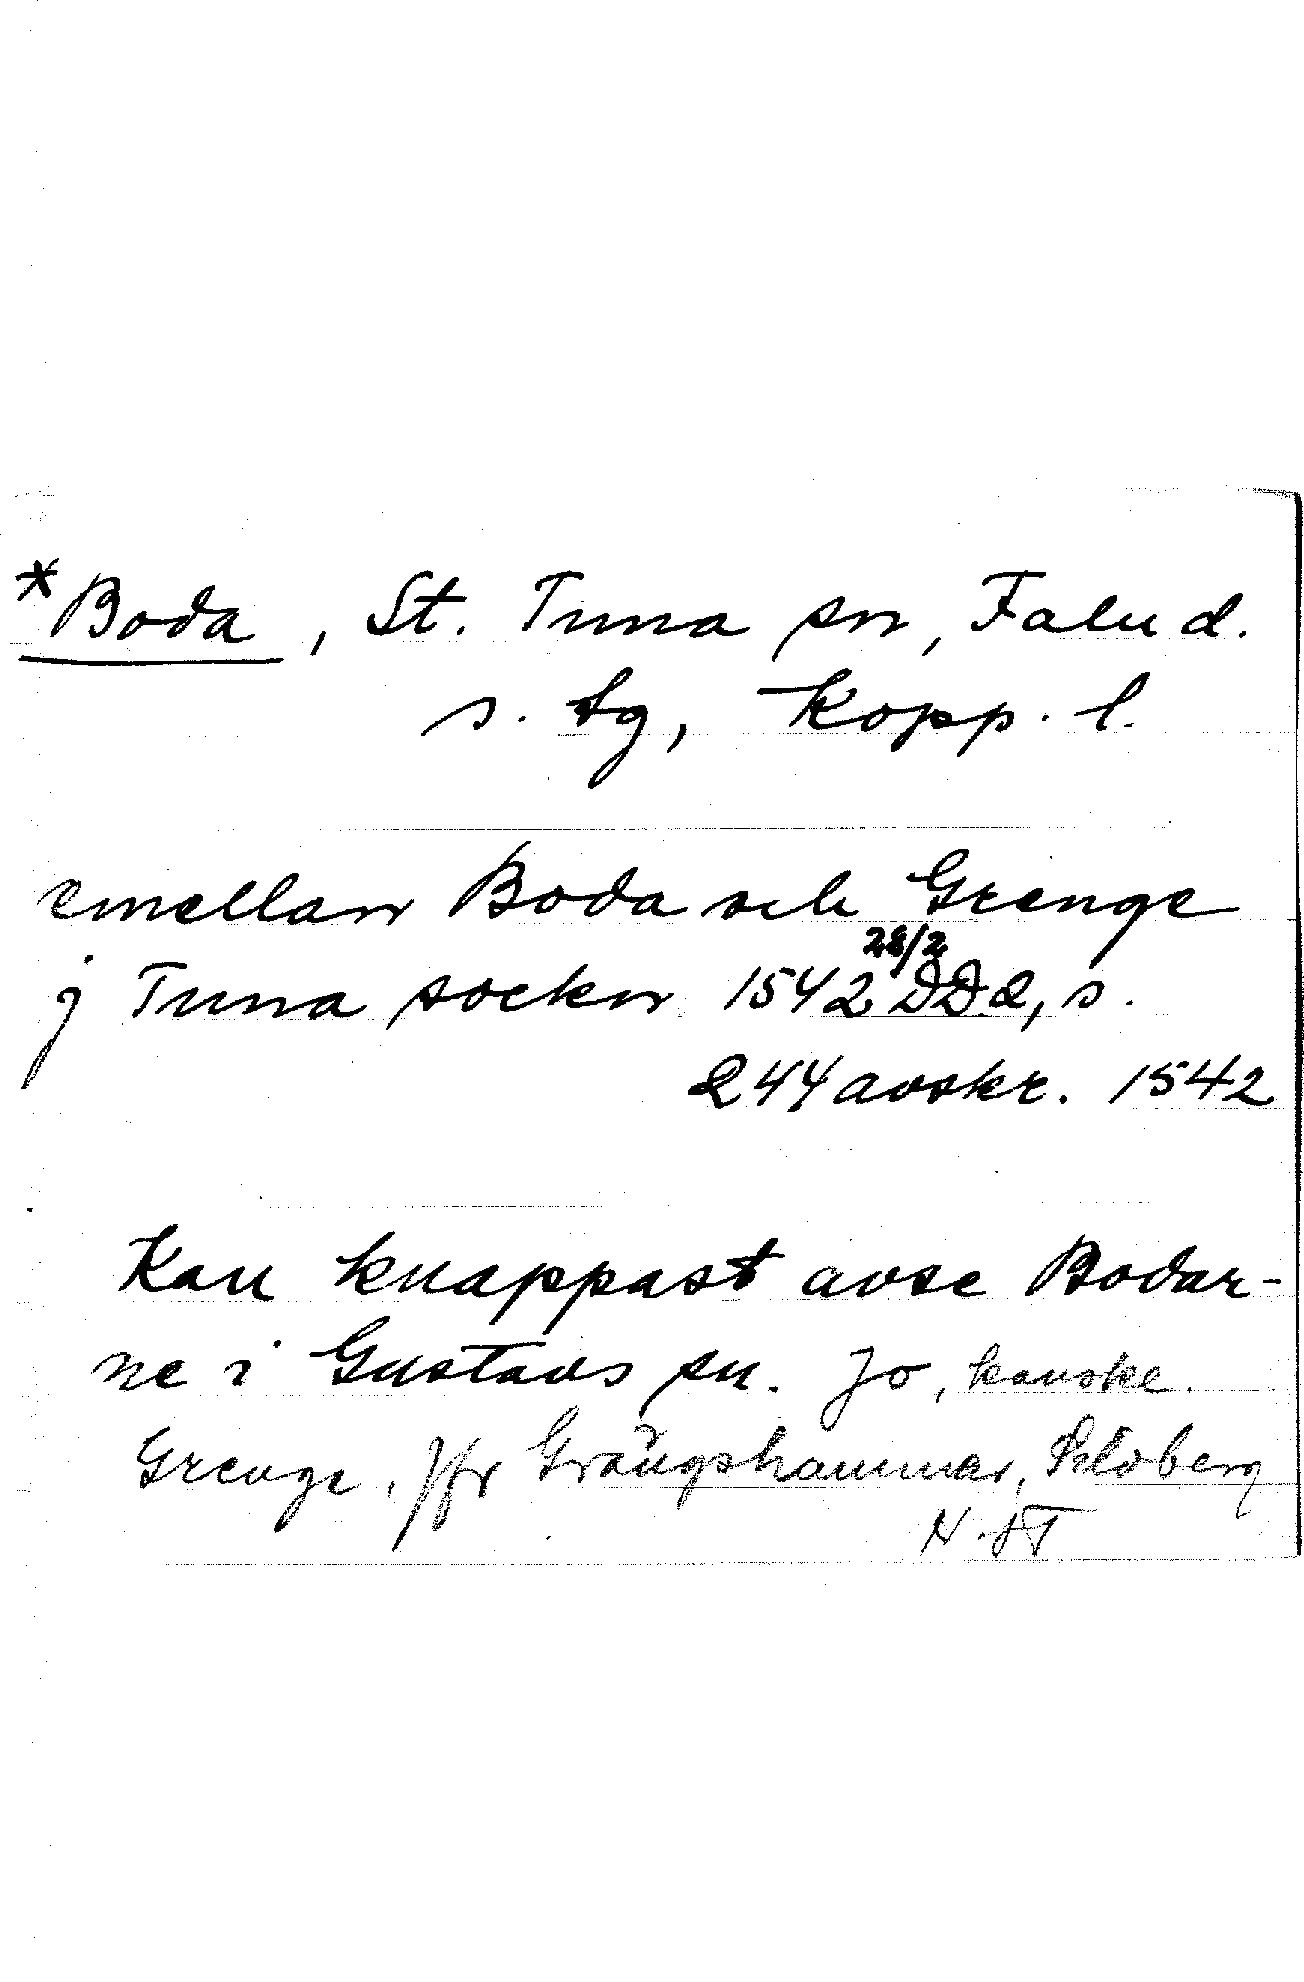 *Boda, St. Tuna sn, Falu d.
s. tg, Kopp. l.
emellan Boda och Grenge
j Tuna sockn 1542 28/2 DD2, s.
244 avskr. 1542
Kan knappast avse Bodar-
ne i Gustavs sn. Jo, kanske.
Grenge, jfr Grängshammar, Silvberg